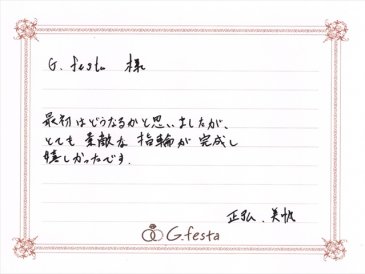 G. festa 様
最初はどうなるかと思いましたが、
とても素敵な指輪が完成し
嬉しかったです.
正弘. 美帆
G.festa